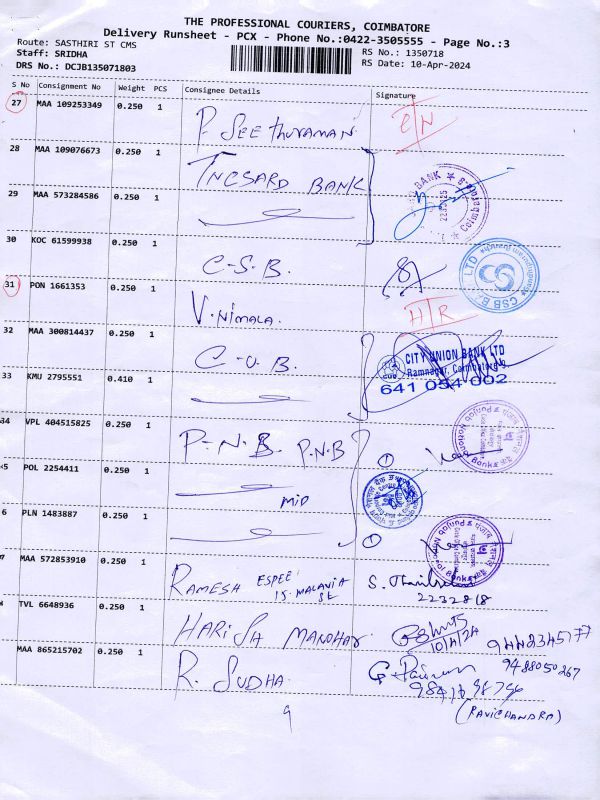 THE PROFESSIONAL COURIERS, COIMBATORE
Delivery Runsheet - PCX - Phone No.:0422-3505555 - Page No.:3
Route: SASTHIRI ST CMS
RS No.: 1350718
Staff: SRIDHA
RS Date: 10-Apr-2024
DRS No.: DCJB135071803
S No Consignment No Weight PCS Consignee Details Signature
27 MAA 109253349 0.250 1
P. SEEthuraman
28 MAA 109076673 0.250 1
TNCSARD BANK
29 MAA 573284586 0.250 1
30 KOC 61599938 0.250 1
C-S.B.
CSB BANK LTD
31 PON 1661353 0.250 1
V. Nimala.
32 MAA 300814437 0.250 1
C-U.B.
CITY UNION BANK LTD
Ramnagar, Coimbatore-9
641 054 002
33 KMU 2795551 0.410 1
34 VPL 404515825 0.250 1
P-N.B. P.N.B
35 POL 2254411 0.250 1
MID
6 PLN 1483887 0.250 1
7 MAA 572853910 0.250 1
RAMESH ESPEE
15. MALAVIA St
2232818
TVL 6648936 0.250 1
HARISH MANOHAR
10/4/24
9442345177
MAA 865215702 0.250 1
R. SUDHA
9488050267
(RAVICHANDRA)
9